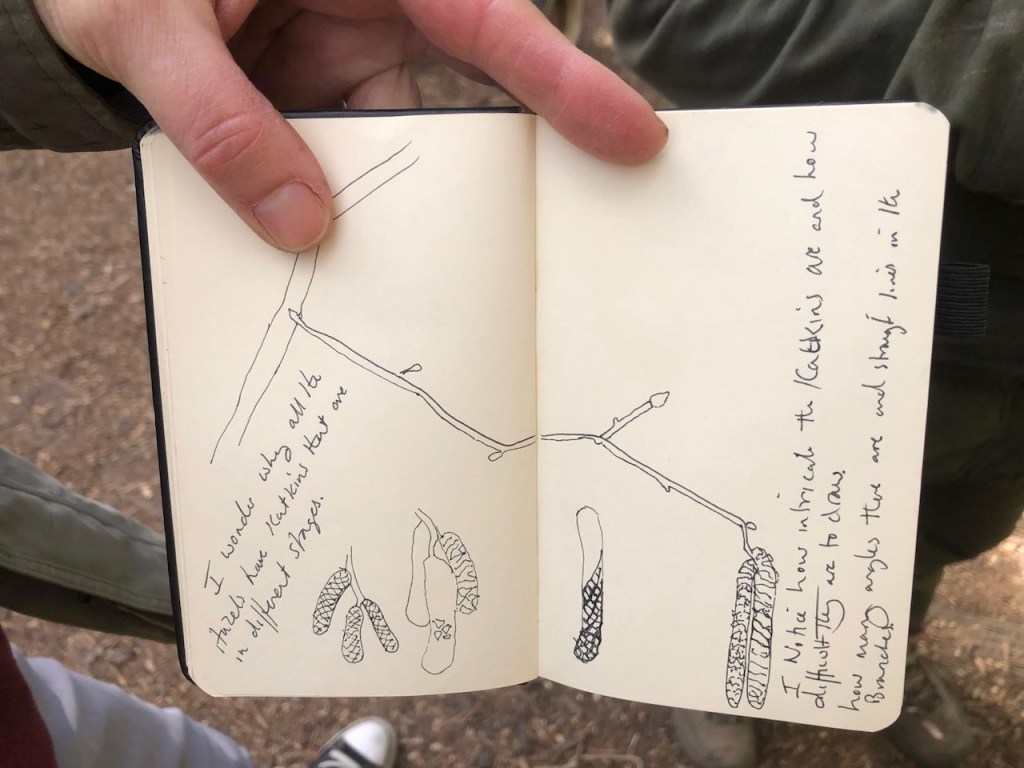 I wonder why all the
Hazels have Katkins that are
in different stages.
I Notice how intricate the Katkins are and how
difficult they are to draw.
how many angles there are and straight lines in the
Branches